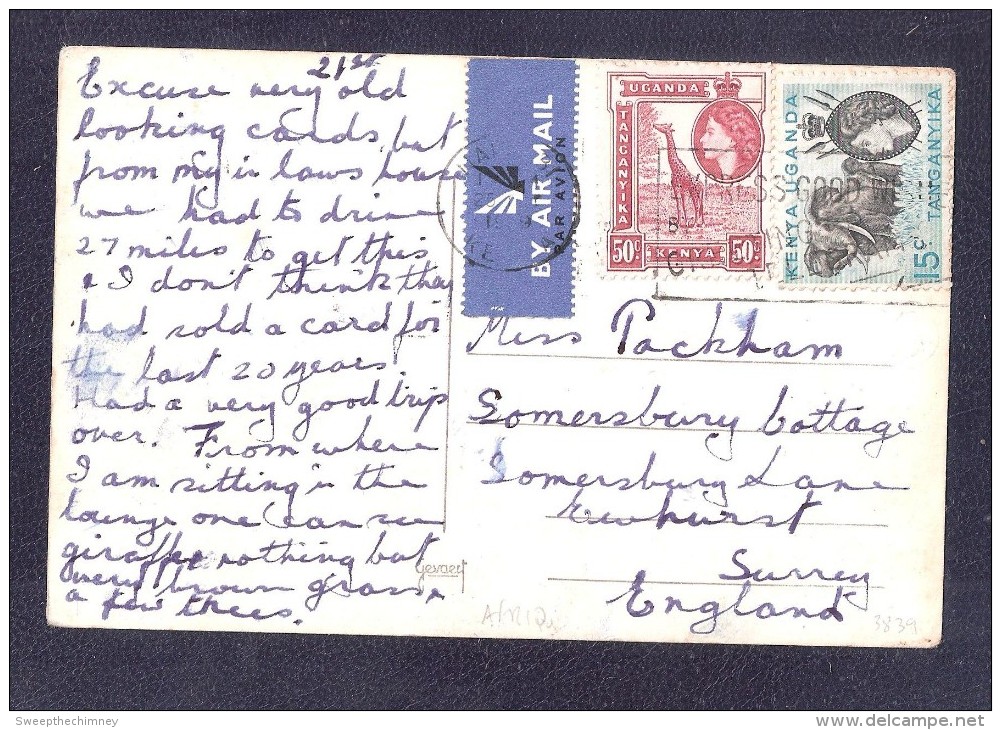 21st
Excuse very old
looking cards, but
from my in laws house
we had to drive
27 miles to get this
& I don't think they
had sold a card for
the last 20 years.
Had a very good trip
over. From where
I am sitting in the
lounge one can see
giraffe nothing but
very brown grass,
a few trees.
BY AIR MAIL
PAR AVION
UGANDA
TANGANYIKA
50c KENYA 50c
KENYA UGANDA
TANGANYIKA
15c
Miss Packham
Somersbury Cottage
Somersbury Lane
Ewhurst
Surrey
England
Gevaert
3839
Sweepthechimney
www.delcampe.net